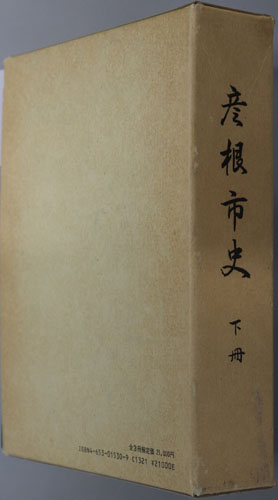 彦根市史
下冊
全3冊揃定価 21,000円
ISBN4-653-01530-9 C1321 ¥21000E